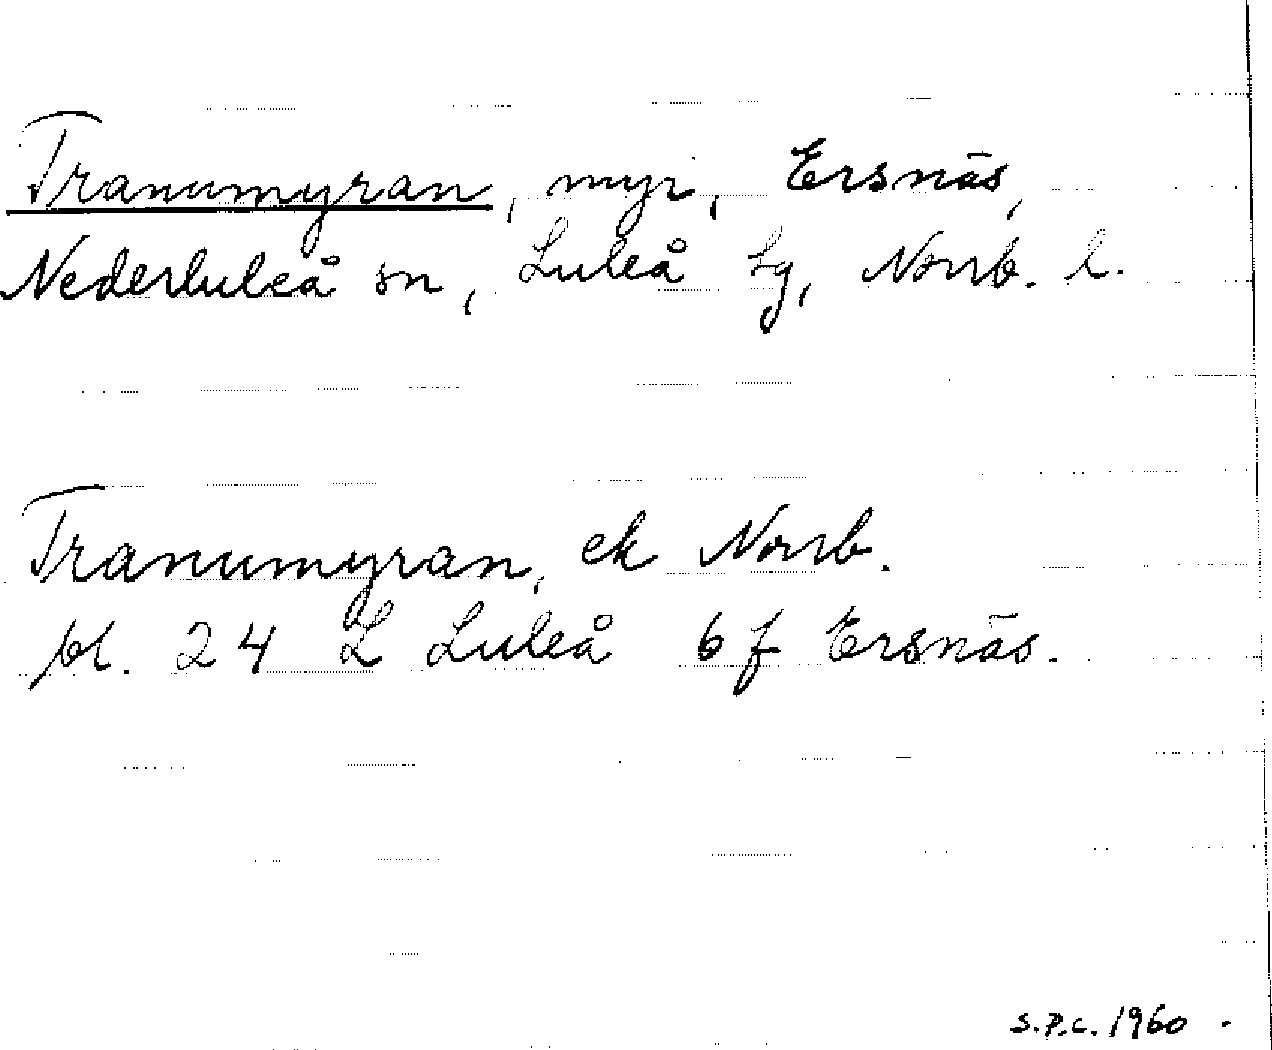 Tranumyran, myr, Ersnäs,
Nederluleå sn, Luleå tg, Norrb. l.
Tranumyran, ek Norrb.
bl. 24 L Luleå 6f Ersnäs.
S.P.C. 1960